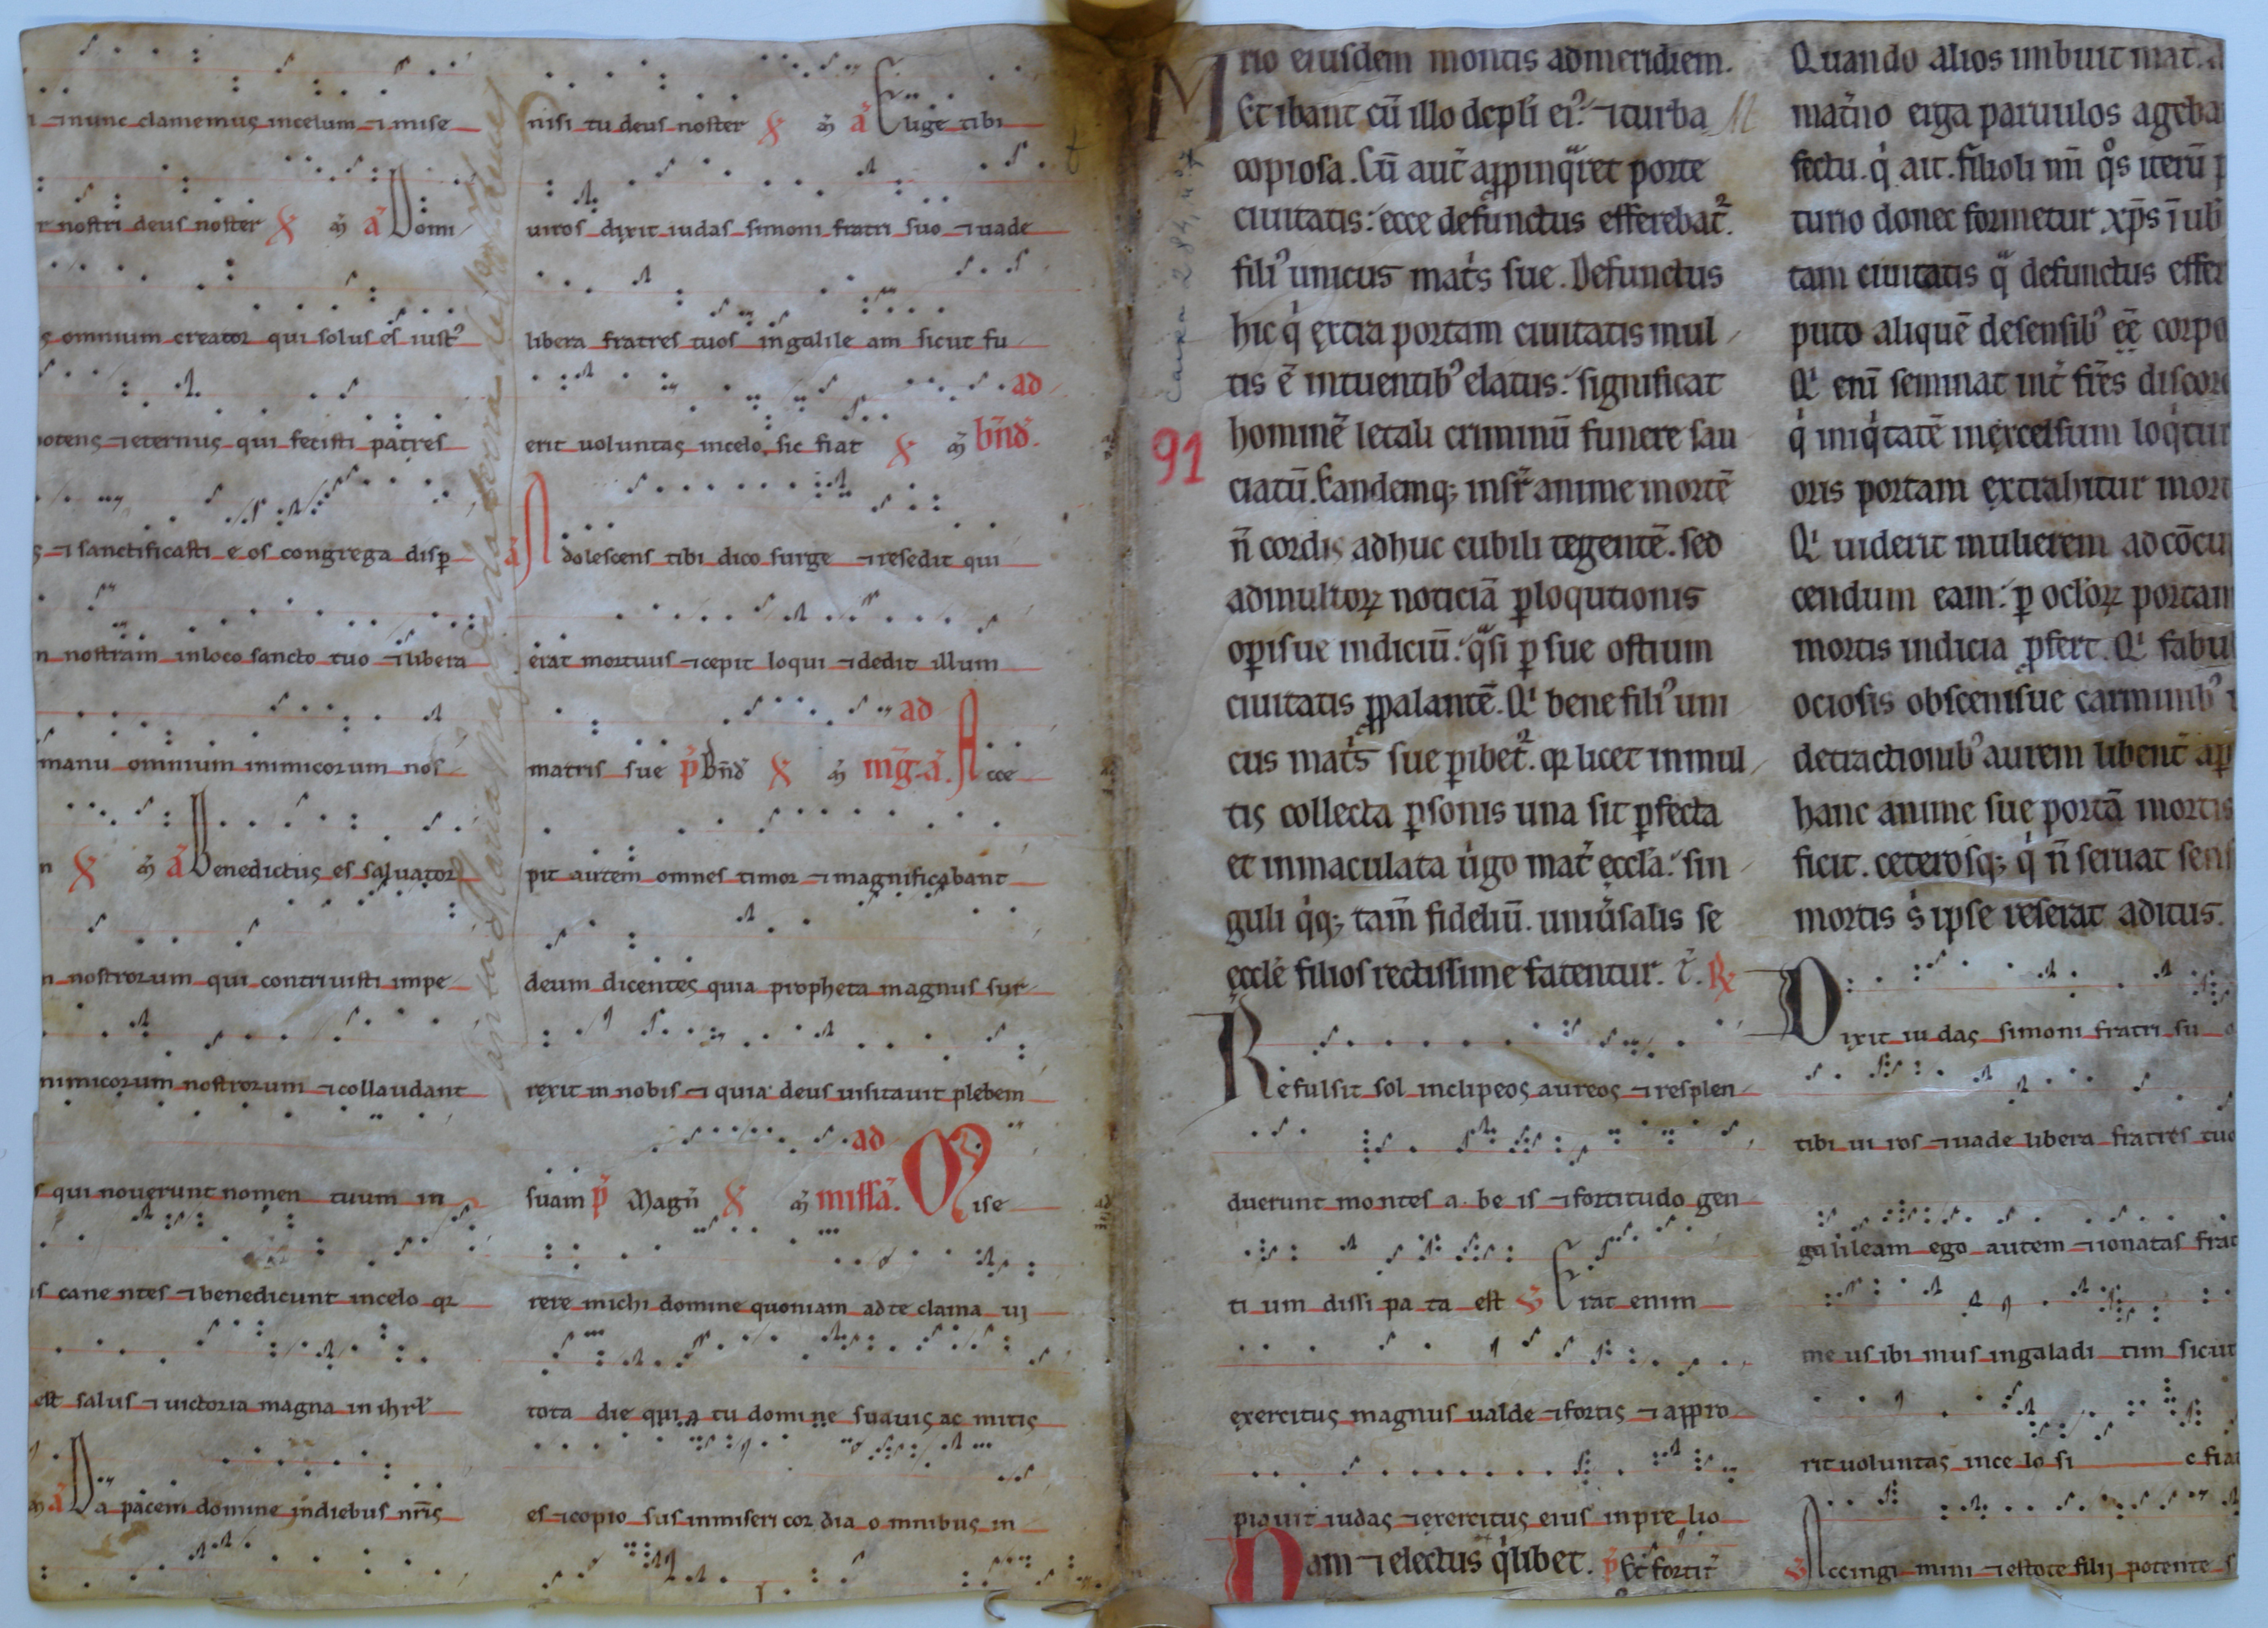 ⁊ nunc clamemus incelum ⁊ mise
nostri deus noster am̄ a Domi
omnium creator qui solus es iustꝰ
potens ⁊ eternus qui fecisti patres
⁊ sanctificasti eos congrega disp̄
nostram inloco sancto tuo ⁊ libera
manu omnium inimicorum nos
am̄ a Benedictus es saluator
nostrorum qui contriuisti impe
nimicorum nostrorum ⁊ collaudant
qui nouerunt nomen tuum in
canentes ⁊ benedicunt incelo qꝛ
est salus ⁊ uictoria magna in ihrl̄
a Da pacem domine indiebus nr̄is
nisi tu deus noster am̄ a Elige tibi
uiros dixit iudas simoni fratri suo ⁊ uade
libera fratres tuos ingalile am sicut fu
ad
erit uoluntas incelo sic fiat am̄ bn̄d.
a Adolescens tibi dico surge ⁊ resedit qui
erat mortuus ⁊ cepit loqui ⁊ dedit illum
ad
matris sue p̄ Bn̄d am̄ mḡ. a. Acce
pit autem omnes timor ⁊ magnificabant
deum dicentes quia propheta magnus sur
rexit in nobis ⁊ quia deus uisitauit plebem
ad
suam p̄ Magn̄ am̄ missā. Mise
rere michi domine quoniam adte clama ui
tota die quia tu domine suauis ac mitis
es ⁊ copio sus inmiseri cor dia omnibus in
rio eiusdem montis admeridiem.
Et ibant cū illo dcpl̄i eiꝰ. ⁊ turba
copiosa. Cū aut̄ app̄inq̄ret porte
ciuitatis: ecce defunctus efferebat̄.
filiꝰ unicus mat̄s sue. Defunctus
hic q̇ extra portam ciuitatis mul
tis ē intuentibꝰ elatus: significat
91
hominē letali criminū funere sau
ciatū. Eandemq; insr̄ anime mortē
n̄ cordis adhuc cubili tegentē. sed
admultoꝝ noticiā ꝑ loqutionis
oꝑisue indiciū. q̄si ꝑ sue ostium
ciuitatis ꝓpalantē. Qi bene filiꝰ uni
cus mat̄s sue ꝑibet̄. qꝛ licet inmul
tis collecta ꝑsonis una sit ꝑfecta
et inmaculata ůgo mat̄ eccl̄a. sin
guli q̇q; tam̄ fideliū. uniu̇salis se
eccl̄e filios rectissime fatentur. t̄. ℟
Refulsit sol inclipeos aureos ⁊ resplen
duerunt montes a be is ⁊ fortitudo gen
ti um dissi pa ta est ℣ Erat enim
exercitus magnus ualde ⁊ fortis ⁊ appro
piauit iudas ⁊ exercitus eius inpre lio
Nam ⁊ electus q̇libet. p̄ Et fortit̄
Quando alios imbuit mat̄.
mat̄no erga paruulos ageba
fectu. q̇ ait. filioli mī q̊s iterū
turio donec formetur xp̄s ī ub̄
tam ciuitatis q̄ defunctus effer
puto aliquē desensibꝰ eē corpo
Qi enī seminat int̄ fr̄es discor
q̇ iniq̇tatē inexcelsum loq̇tur
oris portam extrahitur mort
Qi uiderit mulierem adcōcu
cendum eam: ꝑ ocl̄oꝝ portam
mortis indicia ꝓfert. Qi fabu
ociosis obscenisue carminibꝰ
detractionibꝰ aurem libent̄ aꝑ
hanc anime sue portā mortis
ficit. ceterosq; q̇ n̄ seruat sens
mortis s̄ ipse reserat aditus.
Dixit iu das simoni fratri su o
tibi ui ros ⁊ uade libera fratres tuo
galileam ego autem ⁊ ionatas frat
me us ibi mus ingaladi tim sicut
rit uoluntas ince lo si c fiat
℣ Accingi mini ⁊ estote filij potente s